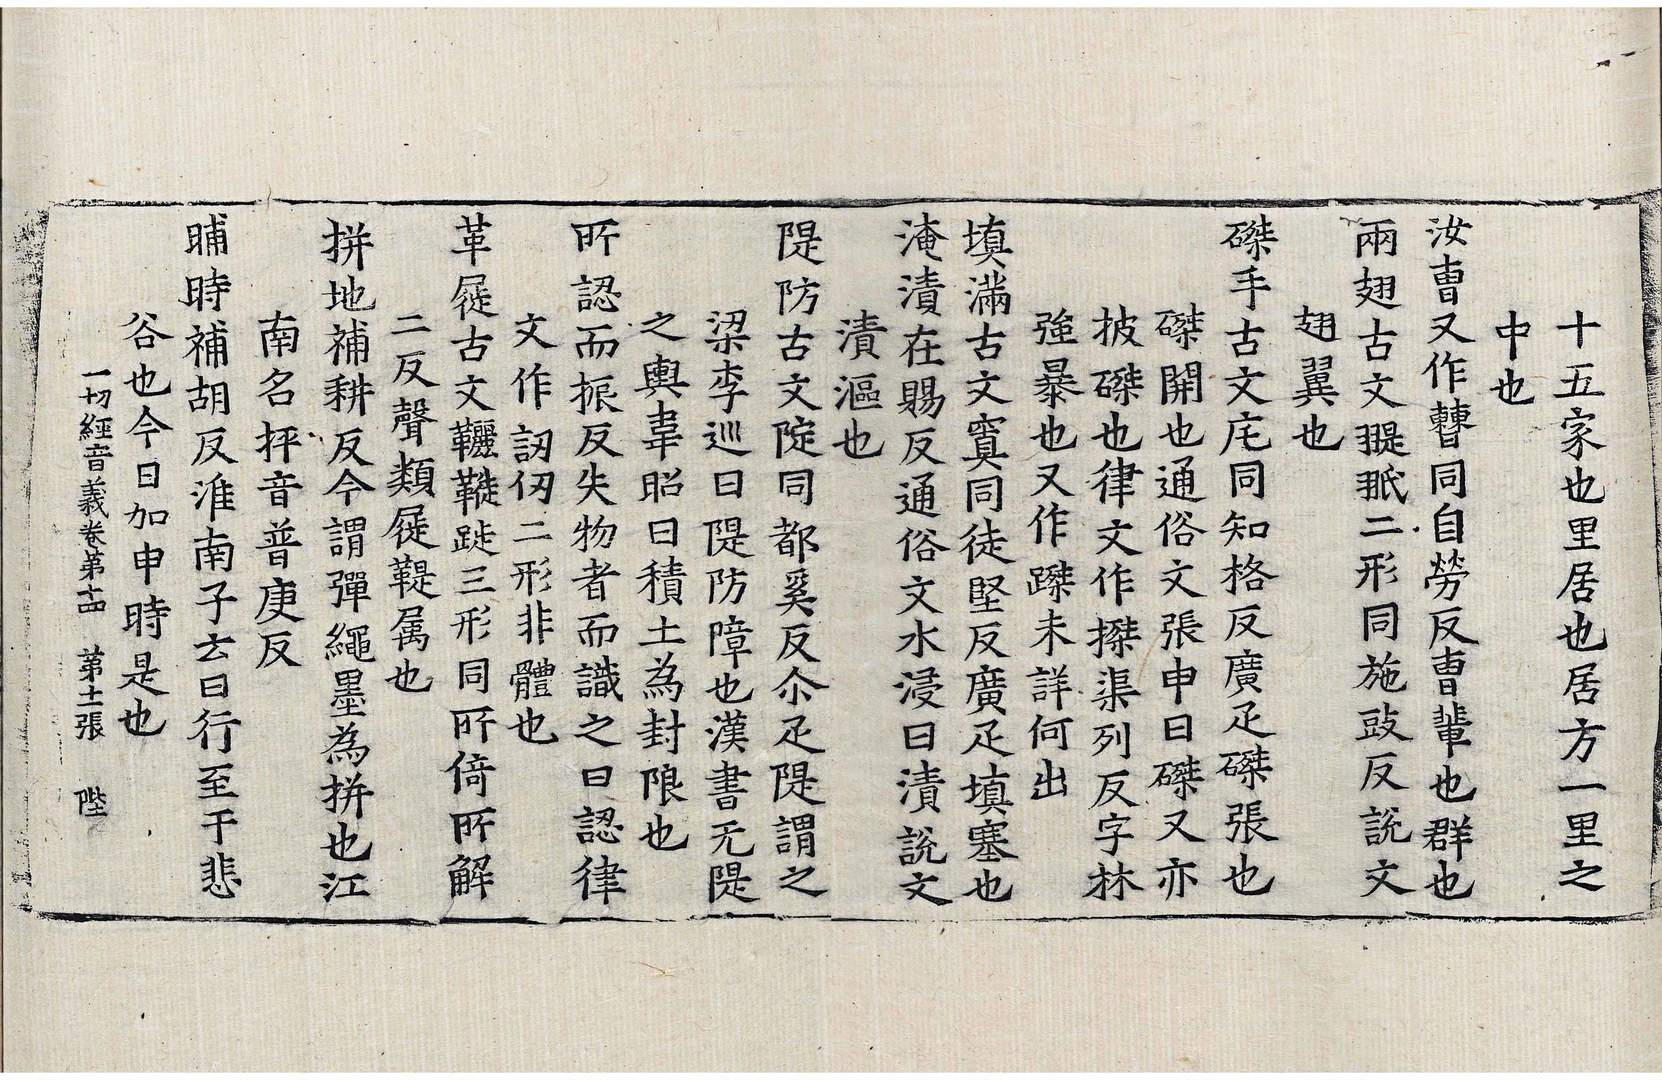 十五家也里居也居方一里之
中也
汝曺又作𣍘同自勞反曺輩也群也
兩翅古文翨翄二形同施豉反說文
翅翼也
磔手古文厇同知格反廣疋磔張也
磔開也通俗文張申曰磔又亦
披磔也律文作搩渠列反字林
強暴也又作蹀未詳何出
填滿古文窴同徒堅反廣疋填塞也
淹漬在賜反通俗文水浸曰漬說文
漬漚也
隄防古文陡同都奚反尒疋隄謂之
梁李巡曰隄防障也漢書无隄
之輿韋昭曰積土為封限也
所認而振反失物者而識之曰認律
文作訒仞二形非體也
革屣古文鞾鞿跿三形同所倚所解
二反聲類屣鞮属也
拼地補耕反今謂彈繩墨為拼也江
南名抨音普庚反
晡時補胡反淮南子云日行至于悲
谷也今日加申時是也
一切經音義卷第十四 第十一張 陛